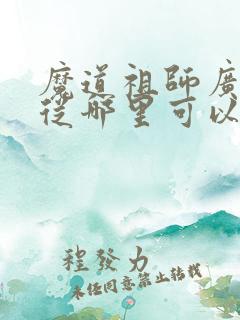 魔道祖師廣
從哪里可以
程發力
未經同意禁止轉載